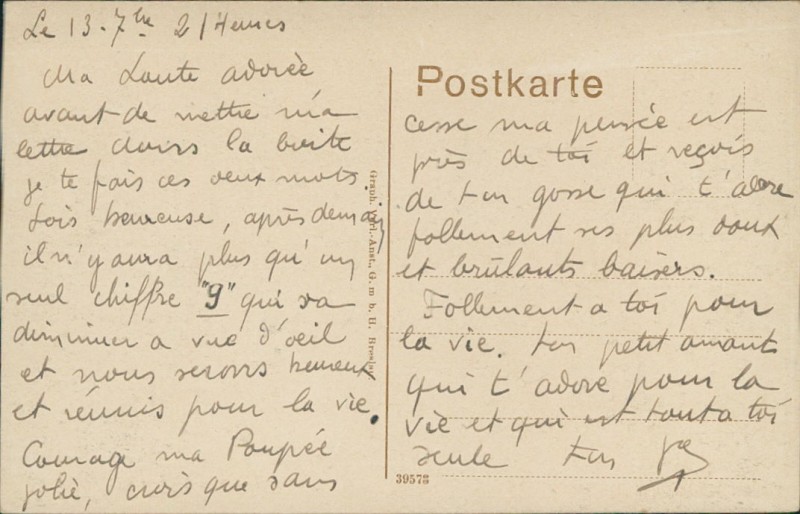 Le 13. 7bre 21 Heures
Ma Loute adorée
avant de mettre ma
lettre dans la boite
je te fais ces deux mots.
Sois heureuse, après demain
il n'y aura plus qu'un
seul chiffre "9" qui va
diminuer a vue d'oeil
et nous serons heureux
et réunis pour la vie.
Courage ma Poupée
jolie, crois que sans
Graph. Verl.-Anst., G. m. b. H. Breslau
Postkarte
cesse ma pensée est
près de toi et reçois
de ton gosse qui t'adore
follement ses plus doux
et brûlants baisers.
Follement a toi pour
la vie. ton petit amant
qui t'adore pour la
vie et qui est tout a toi
seule ton
39573